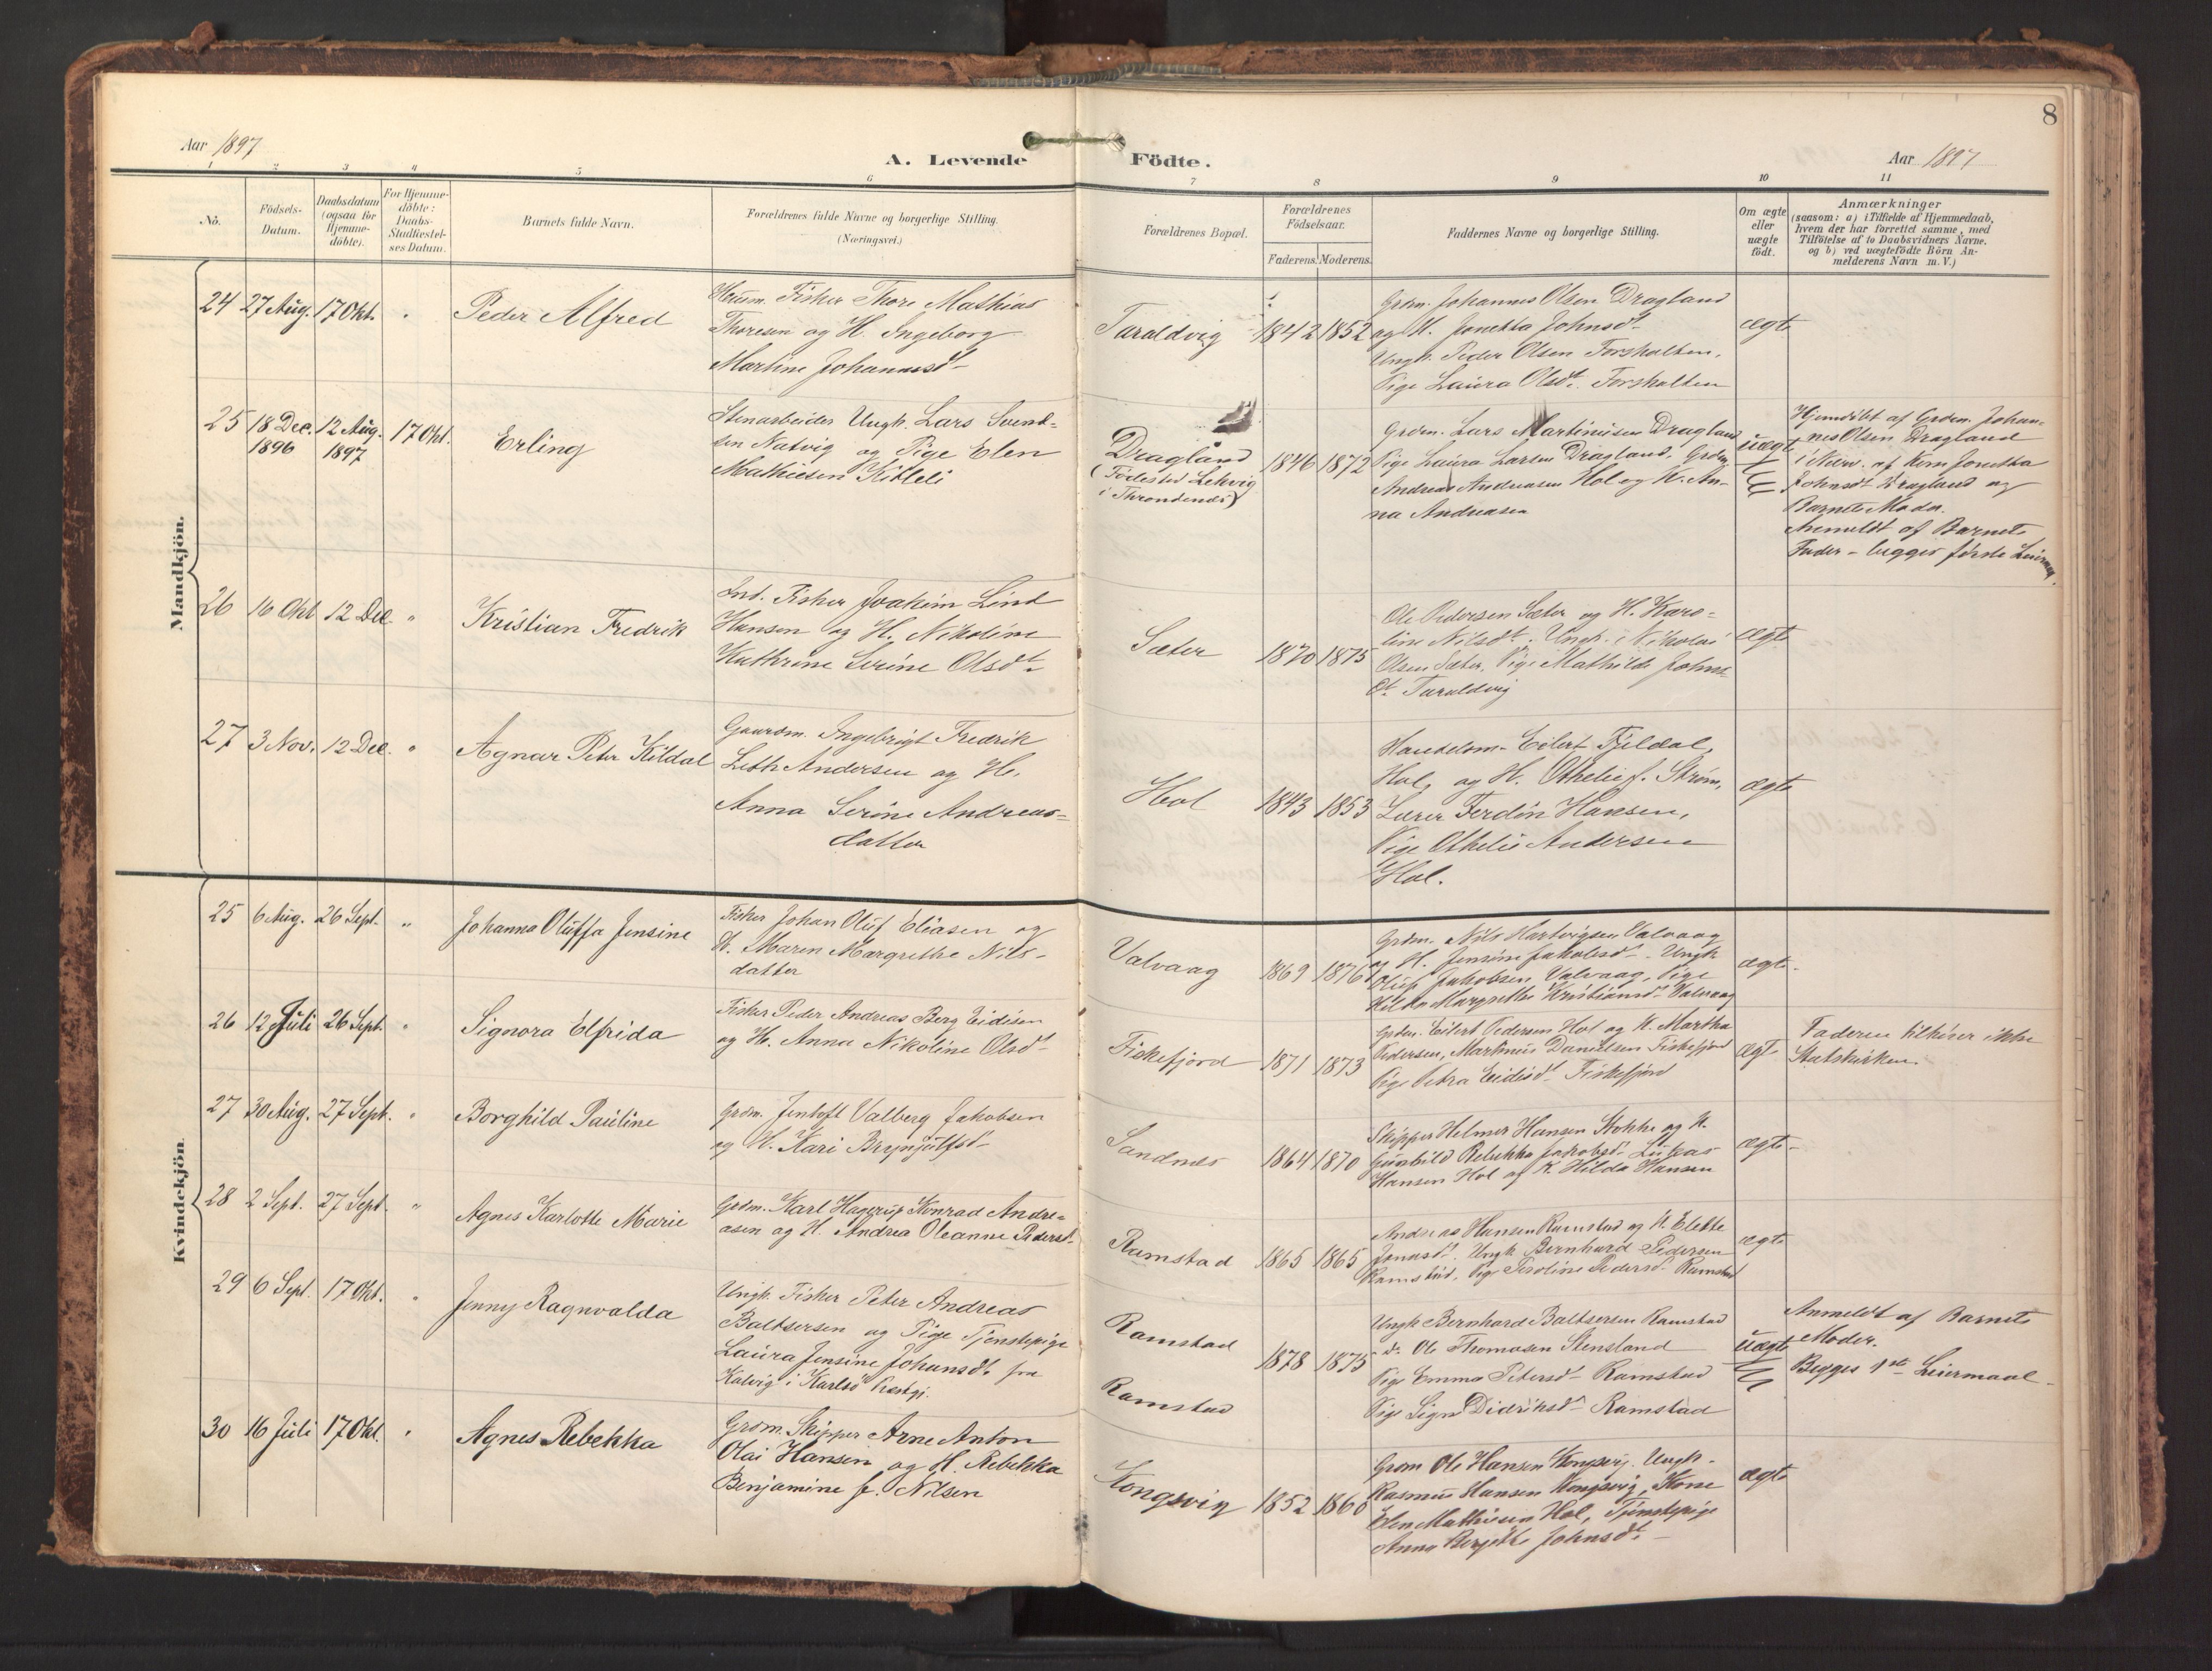 8
Aar 1897
A. Levende Födte.
Aar 1897
1 2 3 4 5 6 7 8 9 10 11
Nö.
Födsels-Datum.
Daabsdatum (ogsaa for Hjemme-döbte).
For Hjemme-döbte: Daabs-Stadfæstel-ses Datum.
Barnets fulde Navn.
Forældrenes fulde Navne og borgerlige Stilling.
(Næringsvei.)
Forældrenes Bopæl.
Forældrenes Födselsaar.
Faderens. Moderens.
Faddernes Navne og borgerlige Stilling.
Om ægte eller uægte födt.
Anmærkninger
(saasom: a) i Tilfælde af Hjemmedaab,
hvem der har forrettet samme, med
Tilföielse af to Daabsvidners Navne,
og b) ved uægtefödte Börn An-
melderens Navn m. V.)
Mandkjön.
24 27 Aug. 17 Okt. " Peder Alfred
Huusm. Fisker Thore Mathias
Thoresen og H. Ingeborg
Martine Johannesdt
Taraldvig 1842 1852
Grdm. Johannes Olsen Dragland
og H. Jonetta Johnsdt
Ungk. Peder Olsen Forshalten,
Pige Laura Olsdt. Forshalten
ægte
25 18 Dec. 1896 12 Aug. 1897 17 Okt. Erling
Stenarbeider Ungk. Lars Svend-
sen Natvig og Pige Elen
Mathiesen Kitleli
Dragland
(Födested Lekvig
i Throndenes)
1846 1872
Grdm. Lars Martinusen Dragland
Pige Laura Larsen Dragland, Grdm.
Andreas Andreasen Hol og K. An-
na Andreasen
uægte
Hjemdöbt af Grdm. Johan-
nes Olsen Dragland
i Nærv. af Kone Jonetta
Johnsdt Dragland og
Barnets Moder.
Anmeldt af Barnets
Fader - begges förste Leierm.
26 16 Okt 12 Dec. " Kristian Fredrik
Ind. Fisker Joakim Lind
Hansen og H. Nikoline
Kathrine Serine Olsdt.
Sæter 1870 1875
Ole Pedersen Sæter og H. Karo-
line Nilsdt. Ungk. Nikolai
Olsen Sæter, Pige Mathilde Johns-
dt. Taraldvig
ægte
27 3 Nov. 12 Dec. " Agnar Peter Kildal
Gaardm. Ingebrigt Fredrik
Leth Andersen og H.
Anna Serine Andreas-
datter
Hol 1843 1853
Handelsm. Eilert Fjeldal,
Hol, og H. Othelie f. Ström,
Lærer Ferdin Hansen,
Pige Othelie Andersen
Hol.
ægte
Kvindekjön.
25 6 Aug. 26 Sept. " Johanna Oluffa Jensine
Fisker Johan Oluf Eliasen og
H. Maren Margrethe Nils-
datter
Valvaag 1869 1876
Grdm. Nils Hartvigsen Valvaag
og H. Jensine Jakobsdt. Ungk
Oluf Jakobsen Valvaag, Pige
Hilda Margrethe Kristiansdt Valvaag
ægte
26 12 Juli 26 Sept. " Signora Elfrida
Fisker Peder Andreas Berg Eidisen
og H. Anna Nikoline Olsdt
Fiskefjord 1871 1873
Grdm. Eilert Pedersen Hol og K. Martha
Pedersen, Martinus Danielsen Fiskefjord
Pige Petra Eidisdt Fiskefjord
ægte
Faderen tilhörer ikke
Statskirken.
27 30 Aug. 27 Sept. " Borghild Pauline
Grdm. Jentoft Valberg Jakobsen
og H. Kari Brynjulfsdt
Sandnes 1864 1870
Skipper Helmer Hansen Stokke og K.
Gunhild Rebekka Jakobsdt. Lukas
Hansen Hol og K. Hilda Hansen
ægte
28 2 Sept. 27 Sept. " Agnes Karlotte Marie
Grdm. Karl Hagerup Konrad Andre-
asen og H. Andrea Oleanne Pedersdt
Ramstad 1865 1865
Andreas Hansen Ramstad og K. Elette
Jonasdt. Ungk Bernhard Pedersen
Ramstad, Pige Peroline Pedersdt Ramstad
ægte
29 6 Sept. 17 Okt. " Jenny Ragnvalda
Ungk. Fisker Peter Andreas
Baltsersen og Pige Tjenstepige
Laura Jensine Johansdt. fra
Kalvig i Karlsö Præstgj.
Ramstad
Ramstad
1878 1875
Ungk Bernhard Baltsersen Ramstad
do. Ole Thomasen Stensland
Pige Emma Petersdt Ramstad
Pige Signe Didriksdt Ramstad
uægte
Anmeldt af Barnets
Moder.
Begges 1ste Leiermaal.
30 16 Juli 17 Okt. " Agnes Rebekka
Grdm. Skipper Arne Anton
Olai Hansen og H. Rebekka
Benjamine f. Nilsen
Kongsvig 1852 1860
Grdm Ole Hansen Kongsvig. Ungk.
Rasmus Hansen Kongsvig, Kone
Elen Mathiesen Hol, Tjenstepige
Anna Bergithe Johnsdt.
ægte